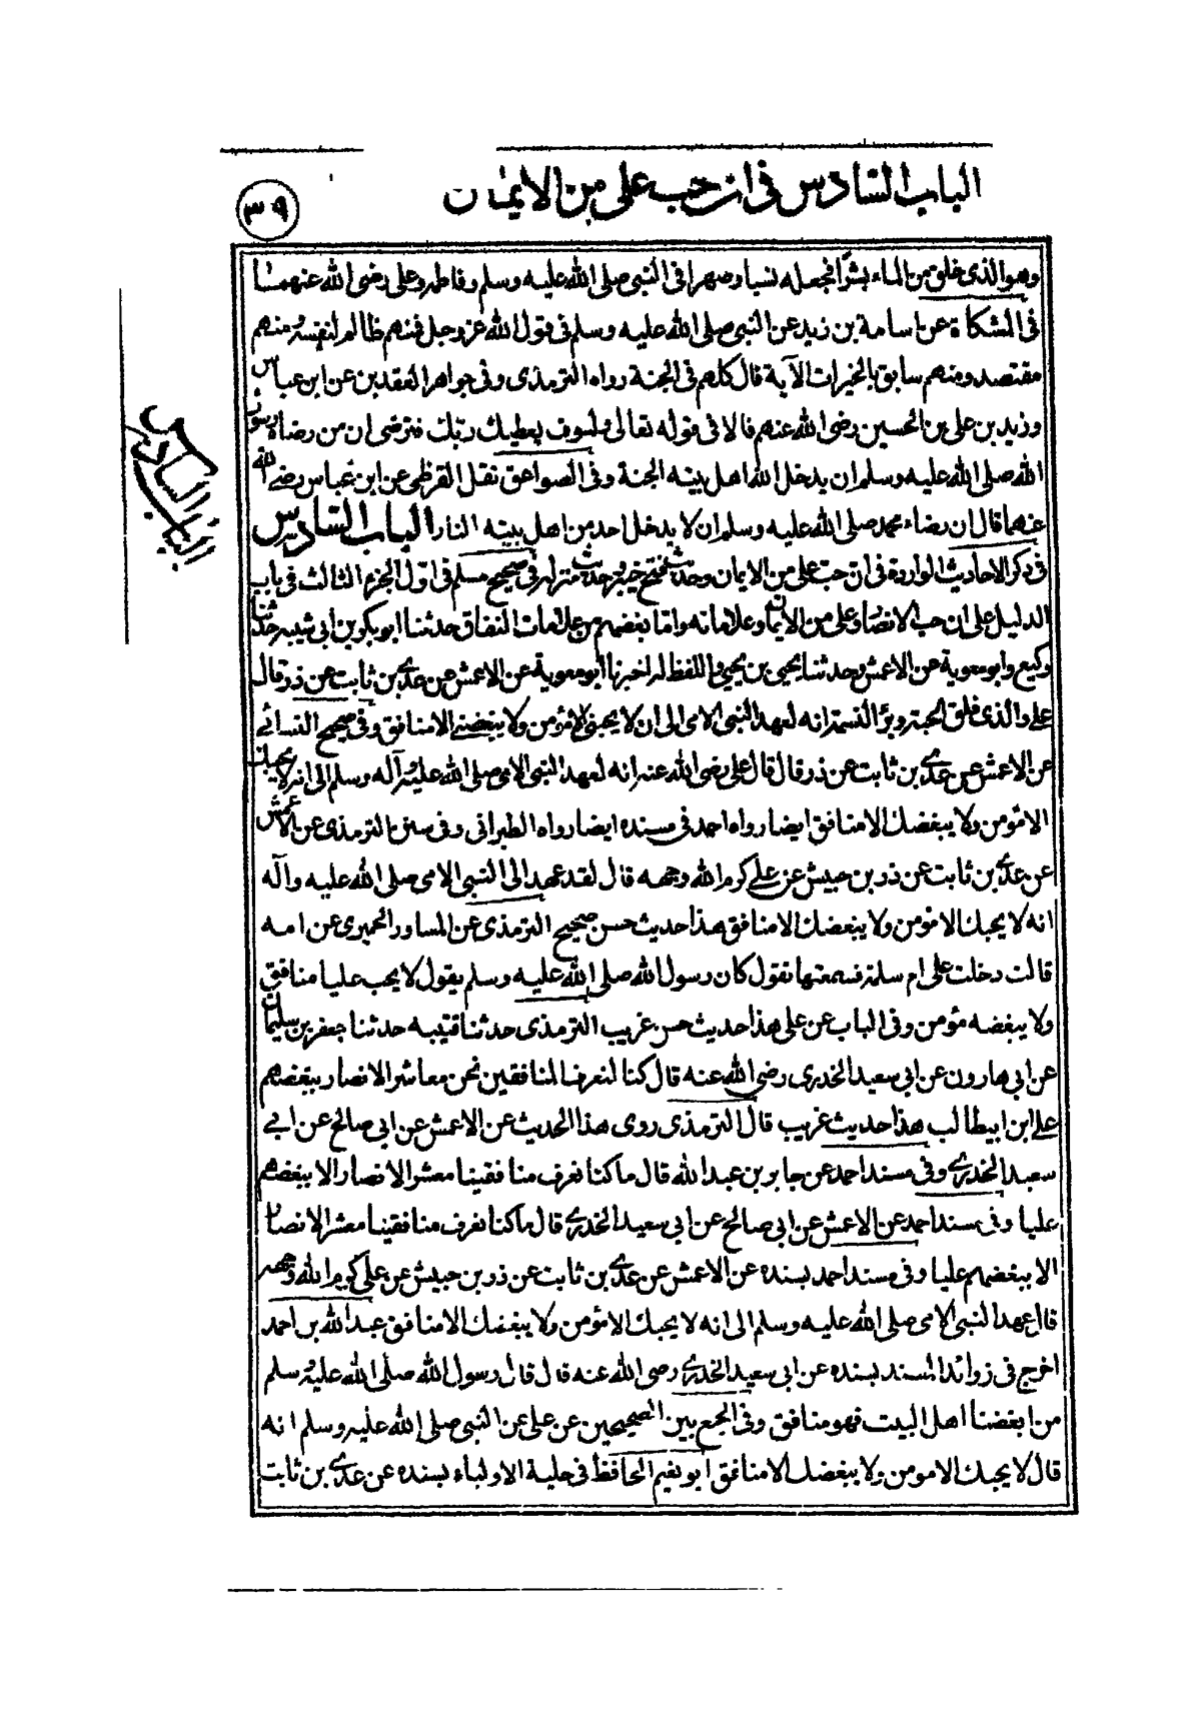 الباب السادس في ان حب على من الايمان
٣٩
وهو الذى خلق من الماء بشرا فجعله نسبا وصهرا في النبي صلى الله عليه وسلم وفاطمة وعلى رضى الله عنهما
فى المشكاة عن اسامة بن زيد عن النبي صلى الله عليه وسلم في قول الله عز وجل فمنهم ظالم لنفسه ومنهم
مقتصد ومنهم سابق بالخيرات الآية قال كلهم في الجنة رواه الترمذى وفى جواهر العقدين عن ابن عباس
وزيد بن على بن الحسين رضى الله عنهم قالا فى قوله تعالى ولسوف يعطيك ربك فترضى ان من رضاء رسول
الله صلى الله عليه وسلم ان يدخل الله اهل بيته الجنة وفى الصواعق نقل القرظى عن ابن عباس رضى الله
عنهما قال ان رضاء محمد صلى الله عليه وسلم ان لا يدخل احد من اهل بيته النار الباب السادس
فى ذكر الاحاديث الواردة فى ان حب على من الايمان وحديث فتح خيبر وحديث منزله في صحيح مسلم فى اول الجزء الثالث فى باب
الدليل على ان حب الانصار وعلى من الايمان وعلاماته واما بغضهم من علامات النفاق حدثنا ابو بكر بن أبى شيبه حدثنا
وكيع وابو معوية عن الاعمش وحدثنا يحيى بن يحيى واللفظ له اخبرنا ابو معوية عن الاعمش عن عدى بن ثابت عن ذر قال
على والذى فلق الحبة وبرأ النسمة انه لعهد النبي الامى الى ان لا يحبنى الا مؤمن ولا يبغضنى الا منافق وفى صحيح النسائى
عن الاعمش عن عدى بن ثابت عن ذر قال قال على رضى الله عنه انه لعهد النبى الامى صلى الله عليه وآله وسلم الى انه لا يحبك
الا مؤمن ولا يبغضك الا منافق ايضا رواه احمد فى مسنده ايضا رواه الطبرانى وفى سنن الترمذى عن الاعمش
عن عدى بن ثابت عن ذر بن حبيش عن على كرم الله وجهه قال لقد عهد الى النبى الامى صلى الله عليه وآله
انه لا يحبك الا مؤمن ولا يبغضك الا منافق هذا حديث حسن صحيح الترمذى عن المساور الحميرى عن امه
قالت دخلت على ام سلمة فسمعتها تقول كان رسول الله صلى الله عليه وسلم يقول لا يحب عليا منافق
ولا يبغضه مؤمن وفى الباب عن على هذا حديث حسن غريب الترمذى حدثنا قتيبه حدثنا جعفر بن سليمان
عن ابى هارون عن ابى سعيد الخدرى رضى الله عنه قال كنا لنعرف المنافقين نحن معاشر الانصار ببغضهم
على ابن ابيطالب هذا حديث غريب قال الترمذى روى هذا الحديث عن الاعمش عن ابى صالح عن ابى
سعيد الخدرى وفى مسند احمد عن جابر بن عبد الله قال ما كنا نعرف منافقينا معشر الانصار الا ببغضهم
عليا وفى مسند احمد عن الاعمش عن ابى صالح عن ابى سعيد الخدرى قال ما كنا نعرف منافقينا معشر الانصار
الا ببغضهم عليا وفى مسند احمد بسنده عن الاعمش عن عدى بن ثابت عن ذر بن حبيش عن على كرم الله وجهه
قال عهد النبى الامى صلى الله عليه وسلم الى انه لا يحبك الا مؤمن ولا يبغضك الا منافق عبد الله بن احمد
اخرج فى زوائد المسند بسنده عن ابى سعيد الخدرى رضى الله عنه قال قال رسول الله صلى الله عليه وسلم
من ابغضنا اهل البيت فهو منافق وفى الجمع بين الصحيحين عن على عن النبى صلى الله عليه وسلم انه
قال لا يحبك الا مومن ولا يبغضك الا منافق أبو نعيم الحافظ فى حلية الاولياء بسنده عن عدى بن ثابت
الباب السادس